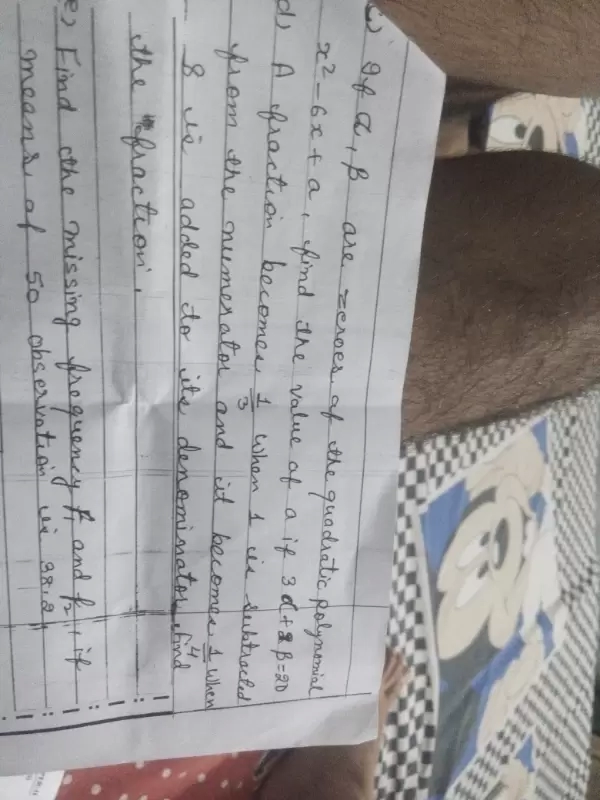 c) If α, β are zeroes of the quadratic polynomial
x² - 6x + a, find the value of a if 3α + 2β = 20
d) A fraction becomes 1/3 when 1 is subtracted
from the numerator and it becomes 1/4 when
8 is added to its denominator, find
the fraction.
e) Find the missing frequency f₁ and f₂, if
means of 50 observation is 38.2